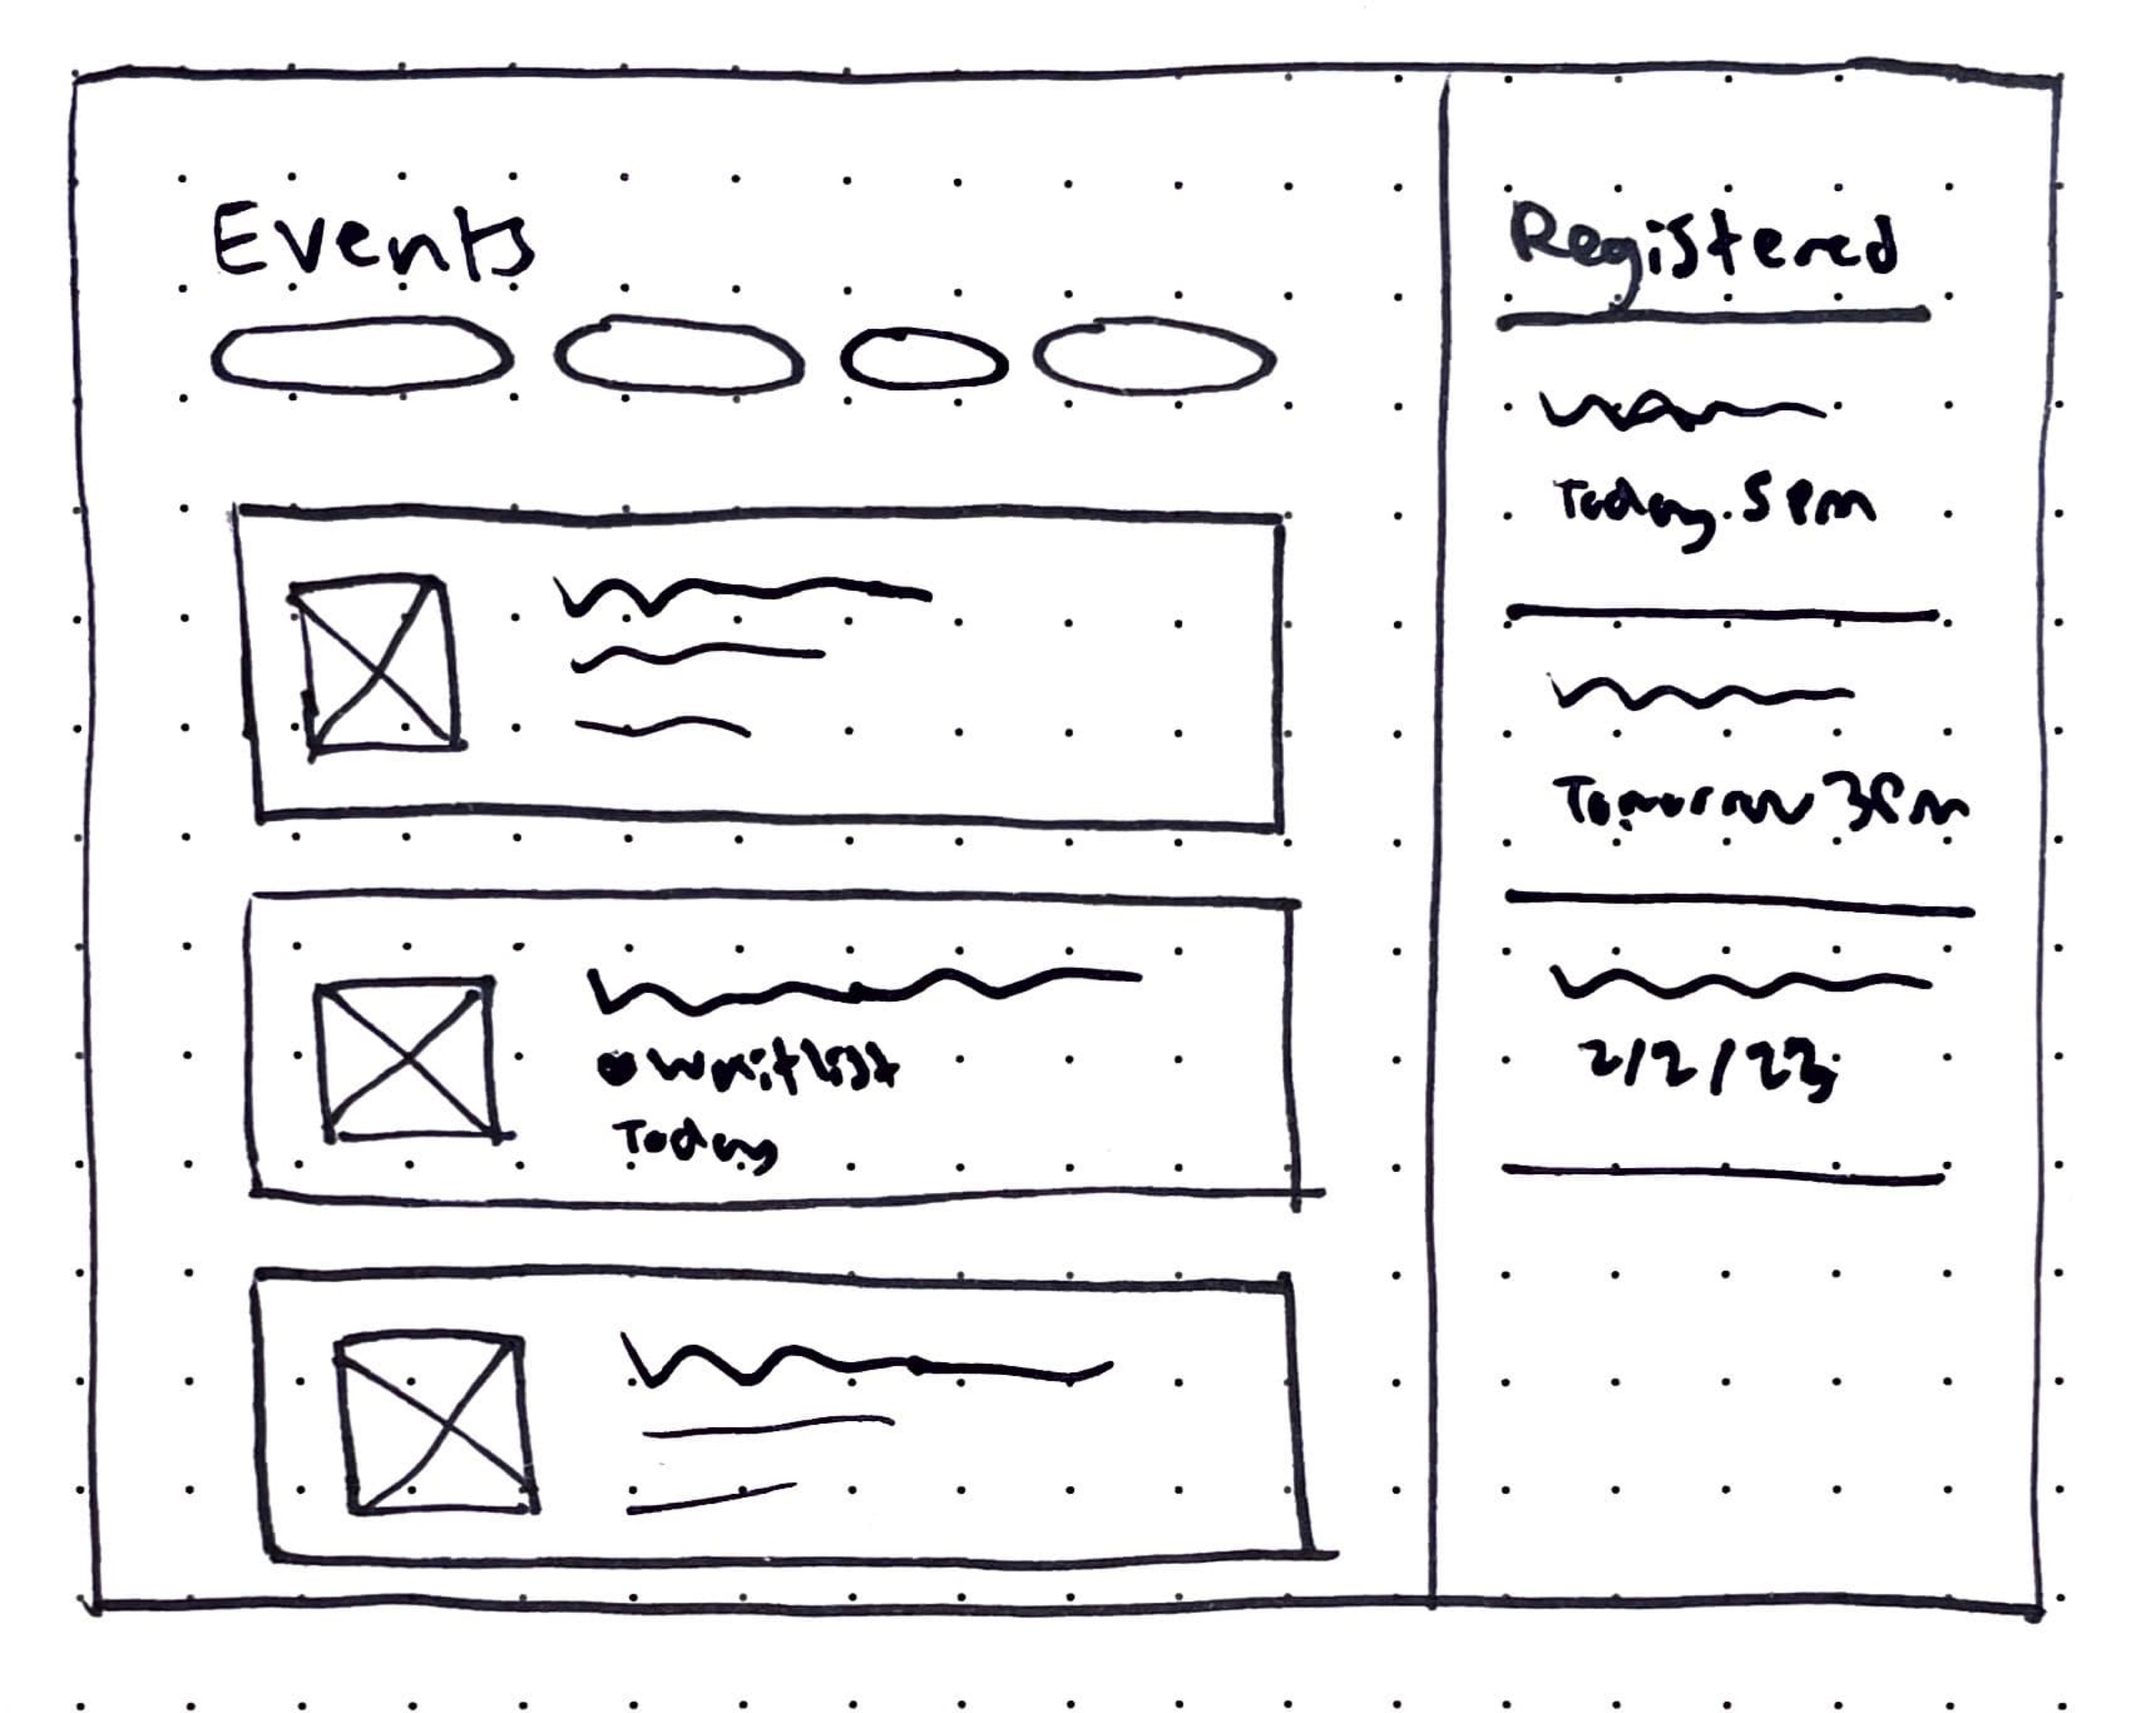 Events
Waitlist
Today
Registered
Today 5pm
Tomorrow 3pm
2/2/23